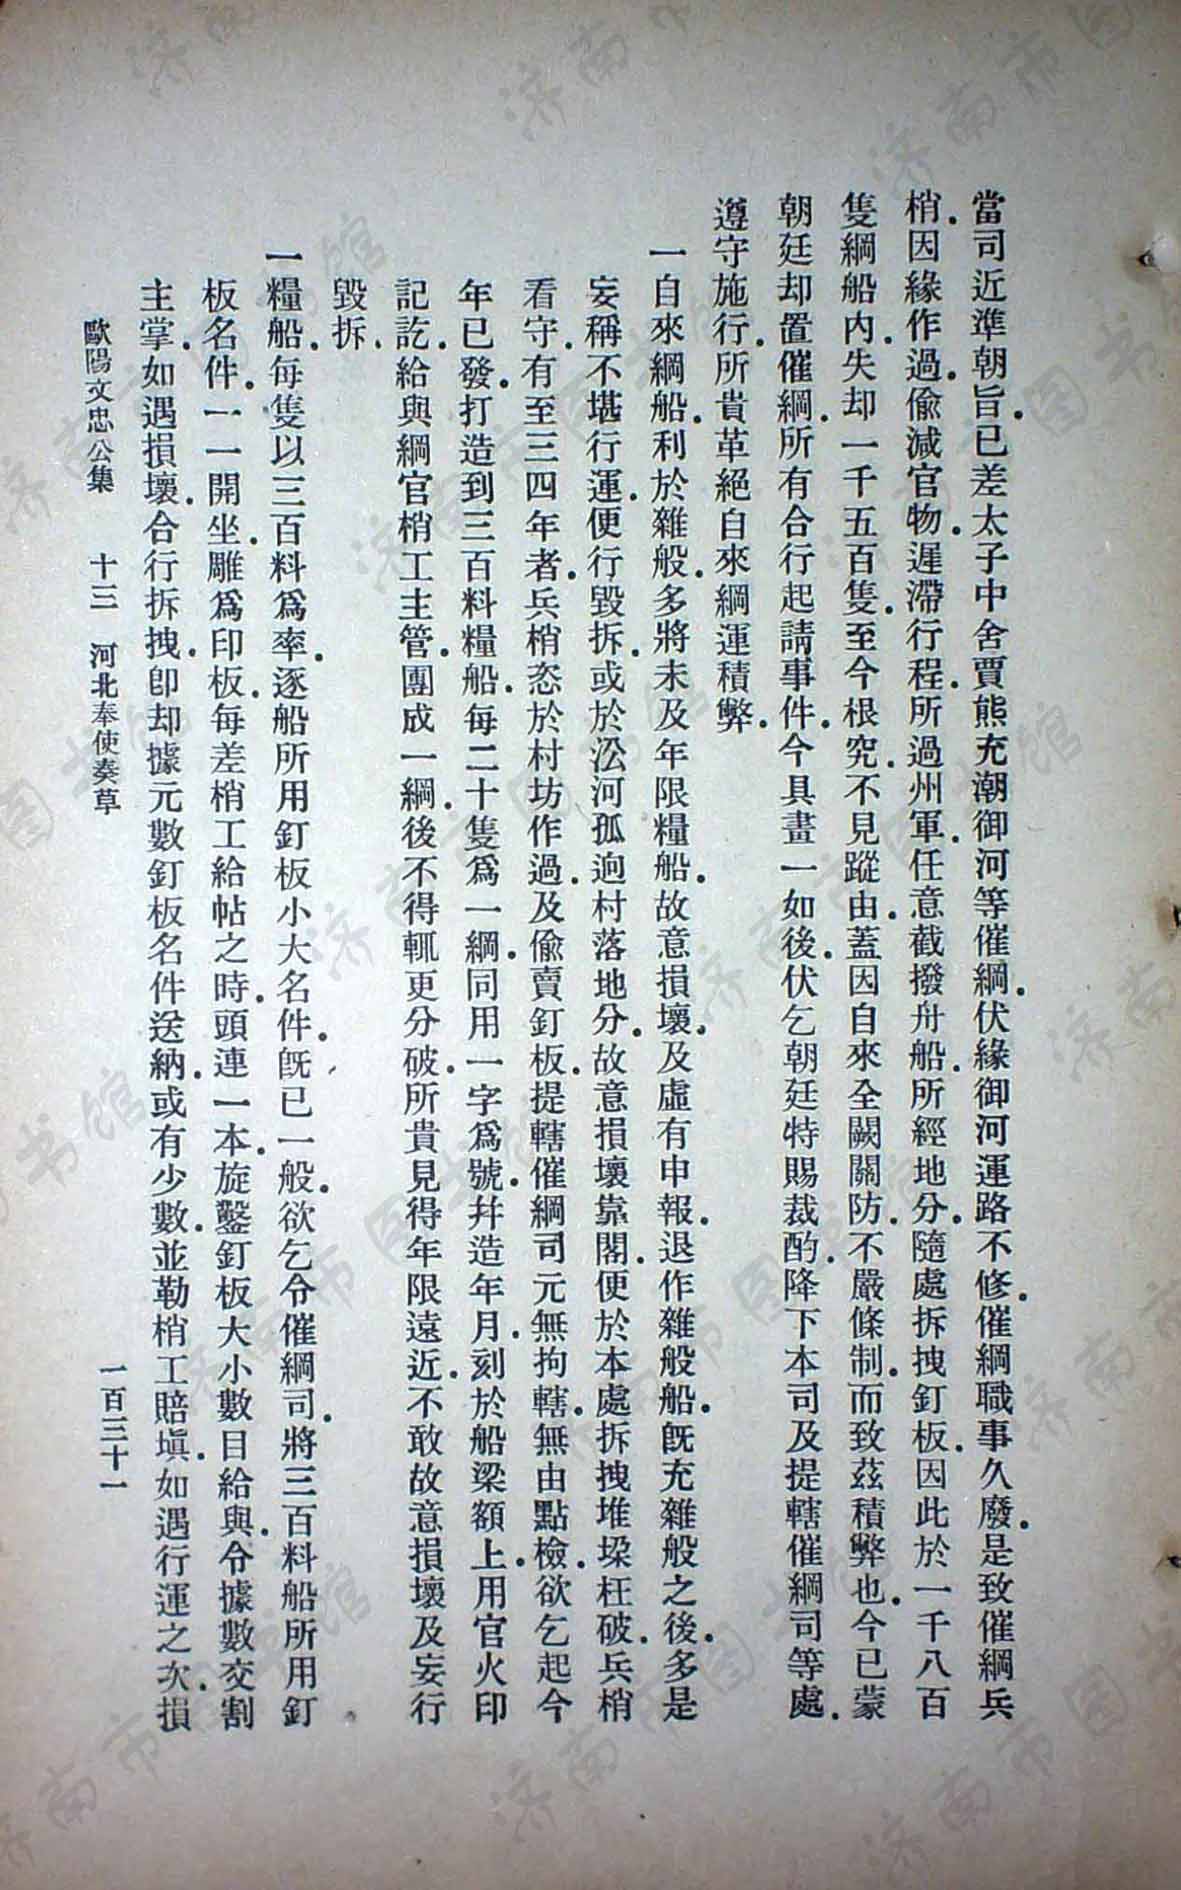 當司近準朝旨.已差太子中舍賈熊充潮御河等催綱.伏緣御河運路不修.催綱職事久廢.是致催綱兵
梢.因緣作過.偷減官物.遲滯行程.所過州軍.任意截撥舟船.所經地分.隨處拆拽釘板.因此於一千八百
隻綱船內.失却一千五百隻.至今根究.不見蹤由.蓋因自來全闕關防.不嚴條制.而致茲積弊也.今已蒙
朝廷却置催綱.所有合行起請事件.今具畫一如後.伏乞朝廷特賜裁酌.降下本司及提轄催綱司等處.
遵守施行.所貴革絕自來綱運積弊.
一自來綱船.利於雜般.多將未及年限糧船.故意損壞.及虛有申報.退作雜般船.既充雜般之後.多是
妄稱不堪行運.便行毀拆.或於㳂河孤逈村落地分.故意損壞靠閣.便於本處拆拽堆垛枉破.兵梢
看守.有至三四年者.兵梢恣於村坊作過.及偷賣釘板.提轄催綱司元無拘轄.無由點檢.欲乞起今
年已發.打造到三百料糧船.每二十隻爲一綱.同用一字爲號.幷造年月.刻於船梁額上.用官火印
記訖.給與綱官梢工主管.團成一綱.後不得輒更分破.所貴見得年限遠近.不敢故意損壞.及妄行
毀拆.
一糧船.每隻以三百料爲率.逐船所用釘板小大名件.既已一般.欲乞令催綱司.將三百料船所用釘
板名件.一一開坐.雕爲印板.每差梢工給帖之時.頭連一本.旋鑿釘板大小數目給與.令據數交割
主掌.如遇損壞.合行拆拽.卽却據元數釘板名件送納.或有少數.並勒梢工賠塡.如遇行運之次.損
歐陽文忠公集 十三 河北奉使奏草 一百三十一
济南市图书馆